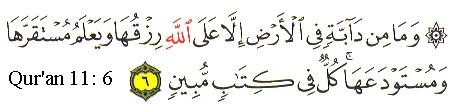 ۞ وَمَا مِن دَآبَّةٍ فِى ٱلْأَرْضِ إِلَّا عَلَى ٱللَّهِ رِزْقُهَا وَيَعْلَمُ مُسْتَقَرَّهَا
وَمُسْتَوْدَعَهَا ۚ كُلٌّ فِى كِتَـٰبٍ مُّبِينٍ ٦ Qur'an 11: 6